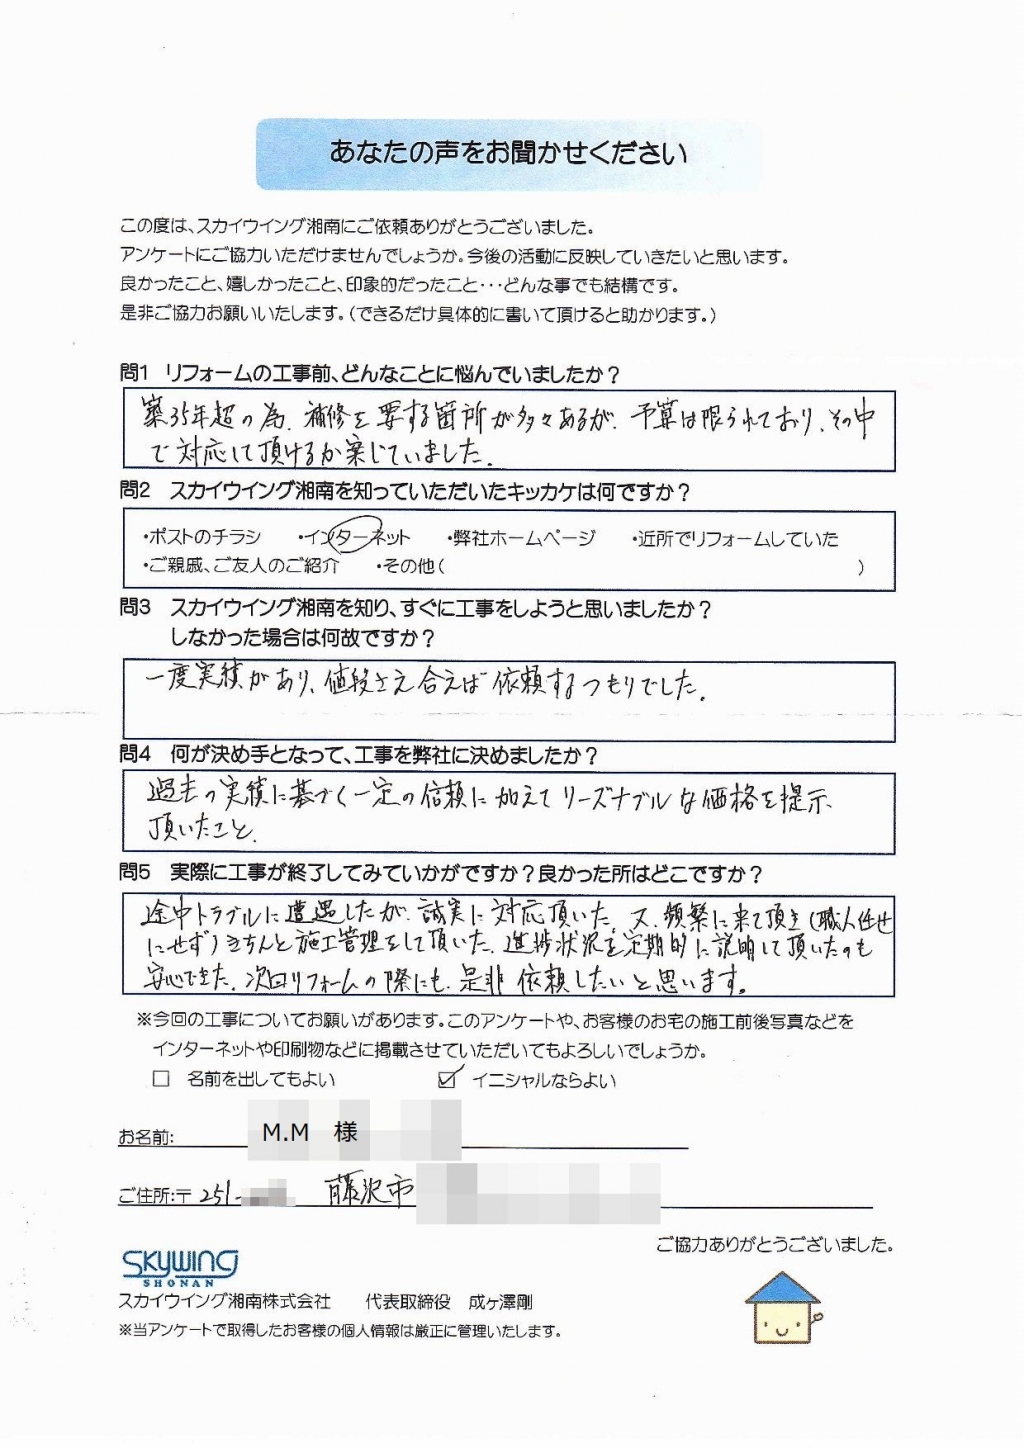 あなたの声をお聞かせください
この度は、スカイウイング湘南にご依頼ありがとうございました。
アンケートにご協力いただけませんでしょうか。今後の活動に反映していきたいと思います。
良かったこと、嬉しかったこと、印象的だったこと・・・どんな事でも結構です。
是非ご協力お願いいたします。(できるだけ具体的に書いて頂けると助かります。)
問1 リフォームの工事前、どんなことに悩んでいましたか?
築35年超の為、補修を要する箇所が多々あるが、予算は限られており、その中
で対応して頂けるか案じていました。
問2 スカイウイング湘南を知っていただいたキッカケは何ですか?
・ポストのチラシ ・インターネット ・弊社ホームページ ・近所でリフォームしていた
・ご親戚、ご友人のご紹介 ・その他( )
問3 スカイウイング湘南を知り、すぐに工事をしようと思いましたか?
しなかった場合は何故ですか?
一度実績があり、値段さえ合えば依頼するつもりでした。
問4 何が決め手となって、工事を弊社に決めましたか?
過去の実績に基づく一定の信頼に加えてリーズナブルな価格を提示
頂いたこと。
問5 実際に工事が終了してみていかがですか?良かった所はどこですか?
途中トラブルに遭遇したが、誠実に対応頂いた。又、頻繁に来て頂き(職人任せ
にせず)きちんと施工管理をして頂いた。進捗状況を定期的に説明して頂いたのも
安心できた。次回リフォームの際にも、是非依頼したいと思います。
※今回の工事についてお願いがあります。このアンケートや、お客様のお宅の施工前後写真などを
インターネットや印刷物などに掲載させていただいてもよろしいでしょうか。
□ 名前を出してもよい ☑ イニシャルならよい
お名前: M.M 様
ご住所:〒 251- 藤沢市
ご協力ありがとうございました。
SKYWING
SHONAN
スカイウイング湘南株式会社 代表取締役 成ヶ澤剛
※当アンケートで取得したお客様の個人情報は厳正に管理いたします。